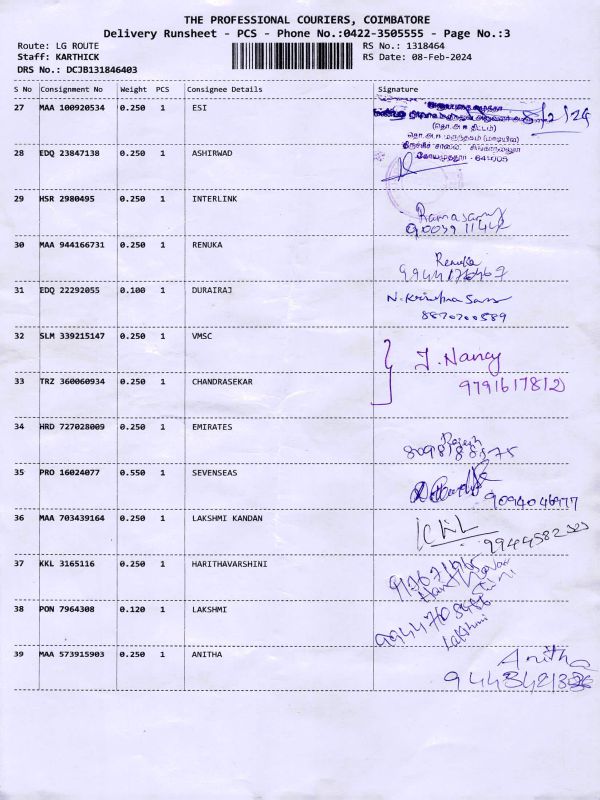 THE PROFESSIONAL COURIERS, COIMBATORE
Delivery Runsheet - PCS - Phone No.:0422-3505555 - Page No.:3
Route: LG ROUTE RS No.: 1318464
Staff: KARTHICK RS Date: 08-Feb-2024
DRS No.: DCJB131846403
S No Consignment No Weight PCS Consignee Details Signature
27 MAA 100920534 0.250 1 ESI 8/2/24
(தொ.அ.ஈ திட்டம்)
28 EDQ 23847138 0.250 1 ASHIRWAD
கோயமுத்தூர் - 641005
29 HSR 2980495 0.250 1 INTERLINK
Ramasamy
30 MAA 944166731 0.250 1 RENUKA
Renuka
31 EDQ 22292055 0.100 1 DURAIRAJ N. Krishna
8870700589
32 SLM 339215147 0.250 1 VMSC
J. Nancy
33 TRZ 360060934 0.250 1 CHANDRASEKAR 9791617812
34 HRD 727028009 0.250 1 EMIRATES
Rajesh
35 PRO 16024077 0.550 1 SEVENSEAS
36 MAA 703439164 0.250 1 LAKSHMI KANDAN
37 KKL 3165116 0.250 1 HARITHAVARSHINI
38 PON 7964308 0.120 1 LAKSHMI
Lakshmi
39 MAA 573915903 0.250 1 ANITHA Anitha